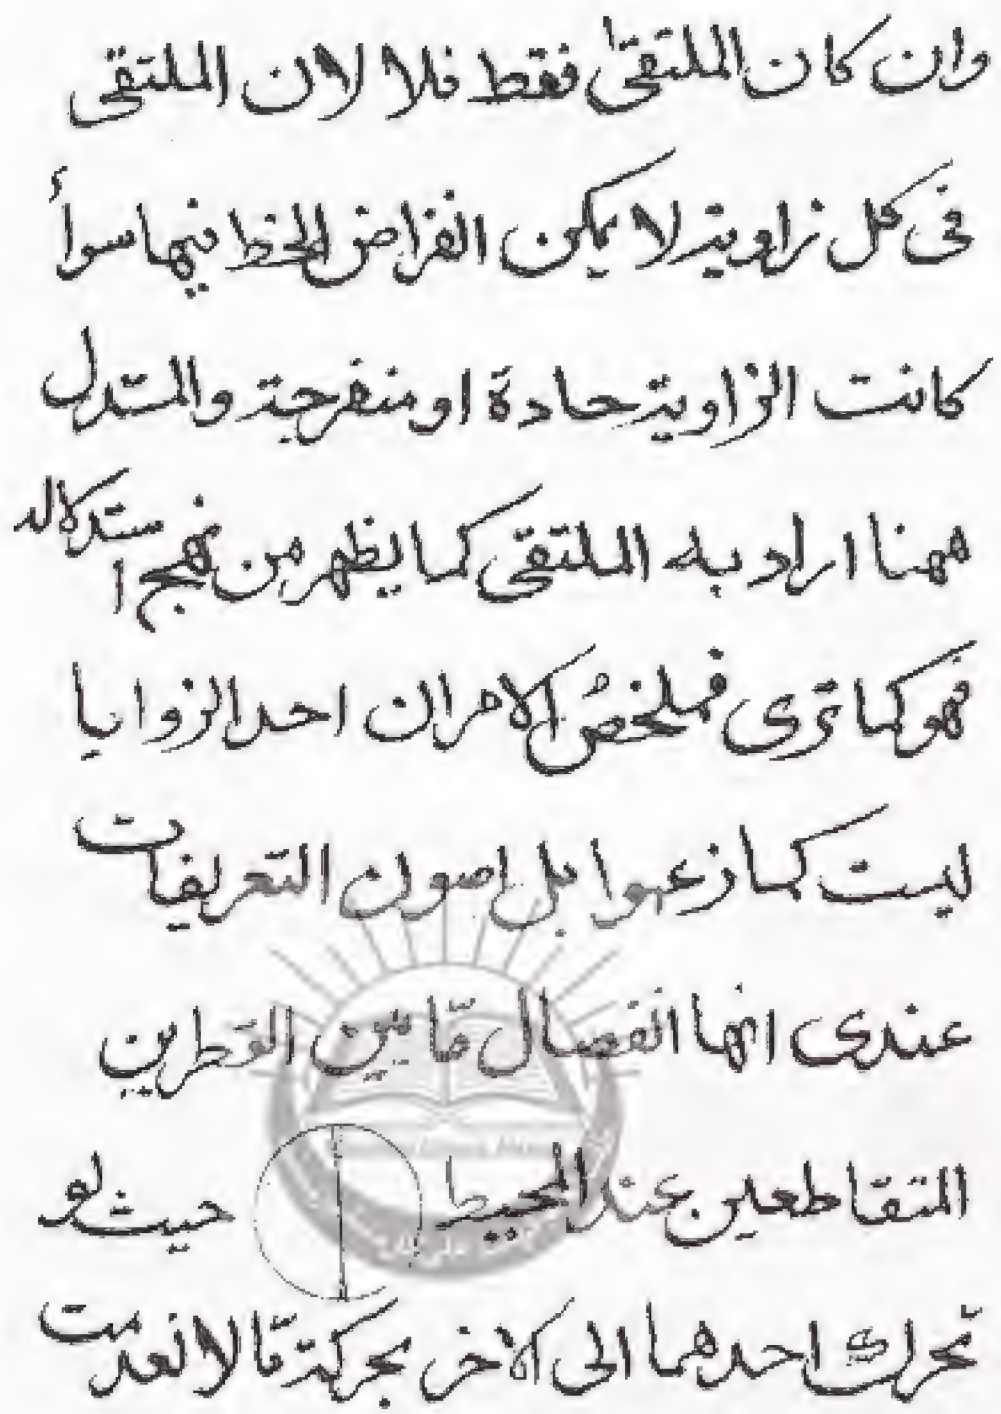 وان كان الملتقىٰ فقط فلا لان الملتقى
فى كل زاوية لا يمكن انفراض الخط فيها سوأ
كانت الزاوية حادة او منفرجة والمستدل
ههنا اراد به الملتقى كما يظهر من نهج استدلاله
فهو كما ترى فملخص الامر ان احد الزوايا
ليست كما زعموا بل اصون التعريفات
عندى انها انفصال مّا بين القطرين
المتقاطعين عند المحيط حيث لو
تحرك احدهما الى الاخر بحركة مّا لانعدمت